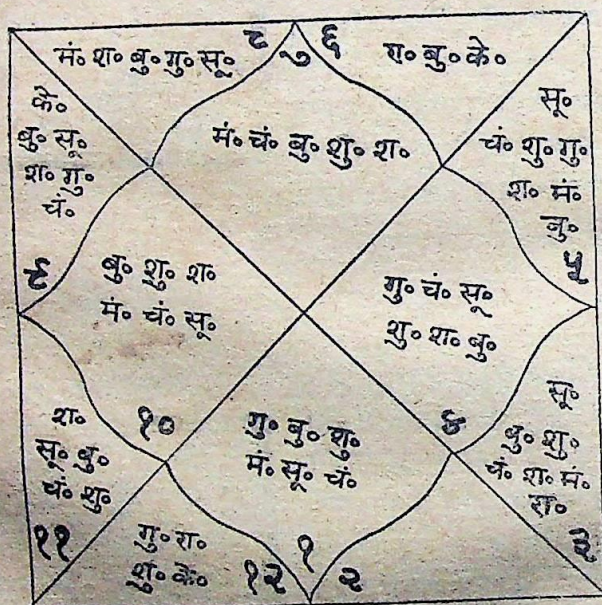 मं॰ श॰ बु॰ गु॰ सू॰
८
७
६
श॰ बु॰ के॰
के॰
बु॰ सू॰
श॰ गु॰
चं॰
मं॰ चं॰ बु॰ शु॰ श॰
सू॰
चं॰ शु॰ गु॰
श॰ मं॰
बु॰
९
बु॰ शु॰ श॰
मं॰ चं॰ सू॰
गु॰ चं॰ सू॰
शु॰ श॰ बु॰
५
रा॰
सू॰ बु॰
चं॰ शु॰
१०
गु॰ बु॰ शु॰
मं॰ सू॰ चं॰
४
सू॰
बु॰ शु॰
चं॰ श॰ मं॰
रा॰
११
गु॰ रा॰
शु॰ के॰
१२
१
२
३